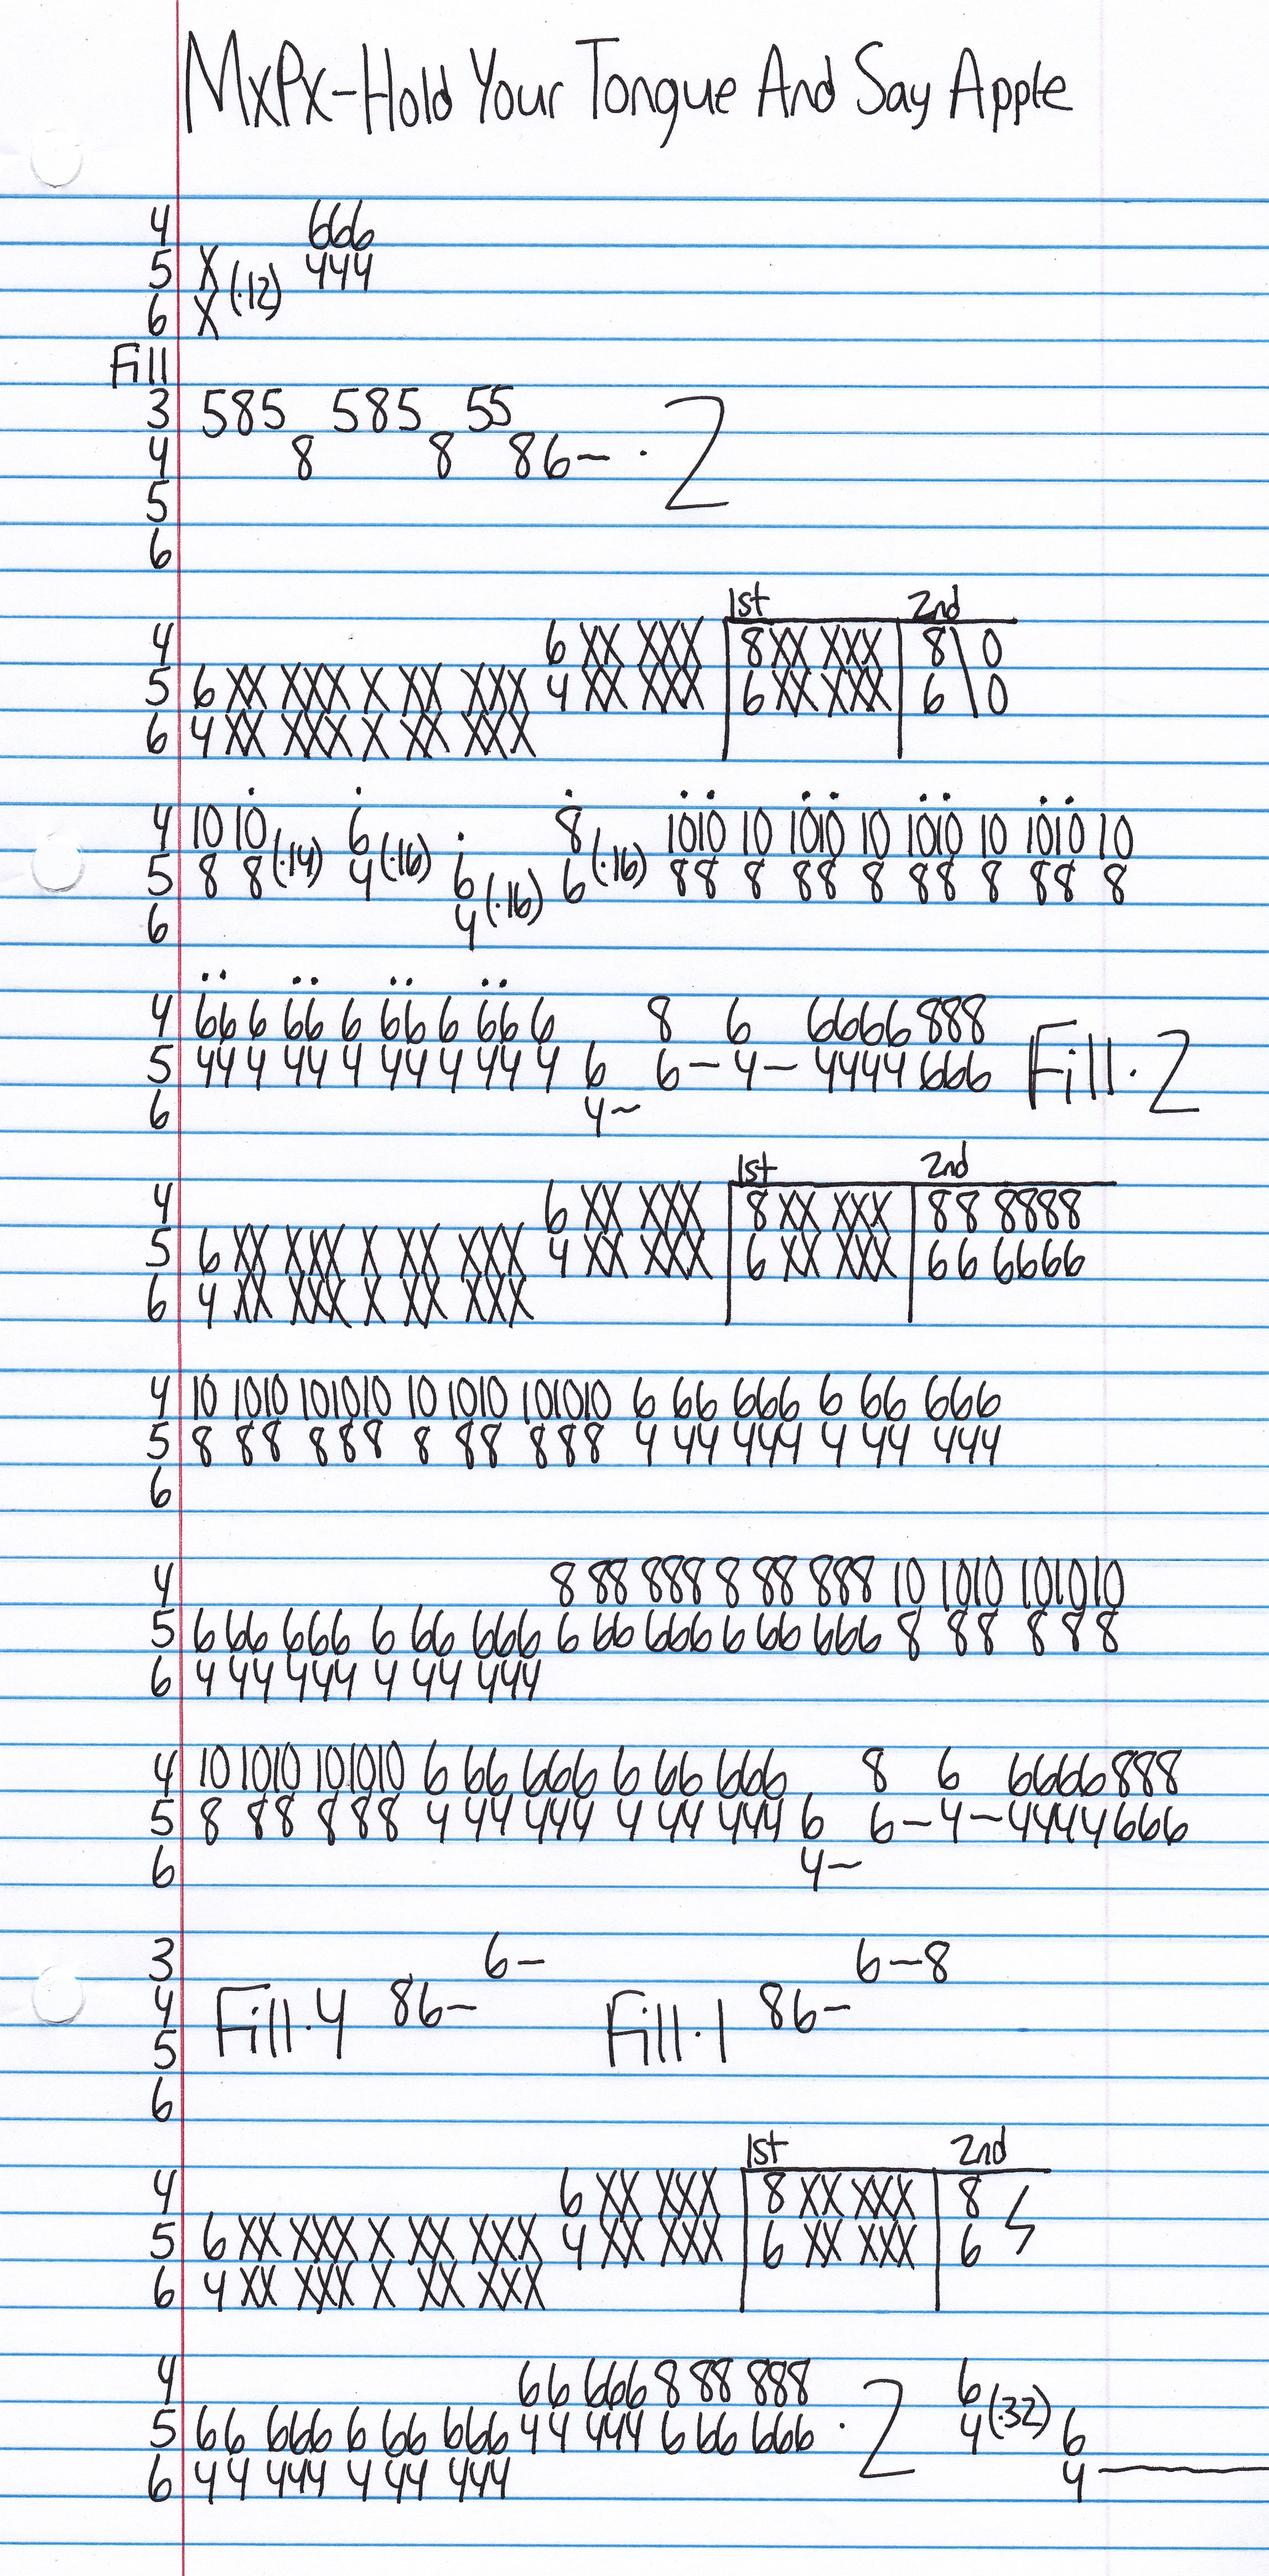 MxPx-Hold Your Tongue And Say Apple
4 666
5 X (.12) 444
6 X
Fill
3 585 585 55
4 8 8 86~ .2
5
6
1st 2nd
4 6 XX XXX 8XX XXX 8\0
5 6 XX XXX X XX XXX 4 XX XXX 6 XX XXX 6\0
6 4 XX XXX X XX XXX
4 10 10 6 8 1010 10 1010 10 1010 10 1010 10
5 8 8(.14) 4(.16) 6 6(.16) 88 8 88 8 88 8 88 8
6 4(.16)
4 66 6 66 6 66 6 66 6 8 6 6666 888
5 44 4 44 4 44 4 44 4 6 6-4-4444 666 Fill.2
6 4~
1st 2nd
4 6 XX XXX 8 XX XXX 88 8888
5 6 XX XXX X XX XXX 4 XX XXX 6 XX XXX 66 6666
6 4 XX XXX X XX XXX
4 10 1010 101010 10 1010 101010 6 66 666 6 66 666
5 8 88 888 8 88 888 4 44 444 4 44 444
6
4 8 88 888 8 88 888 10 1010 101010
5 6 66 666 6 66 666 6 66 666 6 66 666 8 88 888
6 4 44 444 4 44 444
4 10 1010 101010 6 66 666 6 66 666 8 6 6666 888
5 8 88 888 4 44 444 4 44 444 6 6-4-4444 666
6 4~
3 6- 6-8
4 Fill.4 86- Fill.1 86-
5
6
1st 2nd
4 6 XX XXX 8 XX XXX 8
5 6 XX XXX X XX XXX 4 XX XXX 6 XX XXX 6
6 4 XX XXX X XX XXX
4 66 666 8 88 888 6
5 66 666 6 66 666 44 444 6 66 666 .2 4(.32) 6
6 44 444 4 44 444 4—